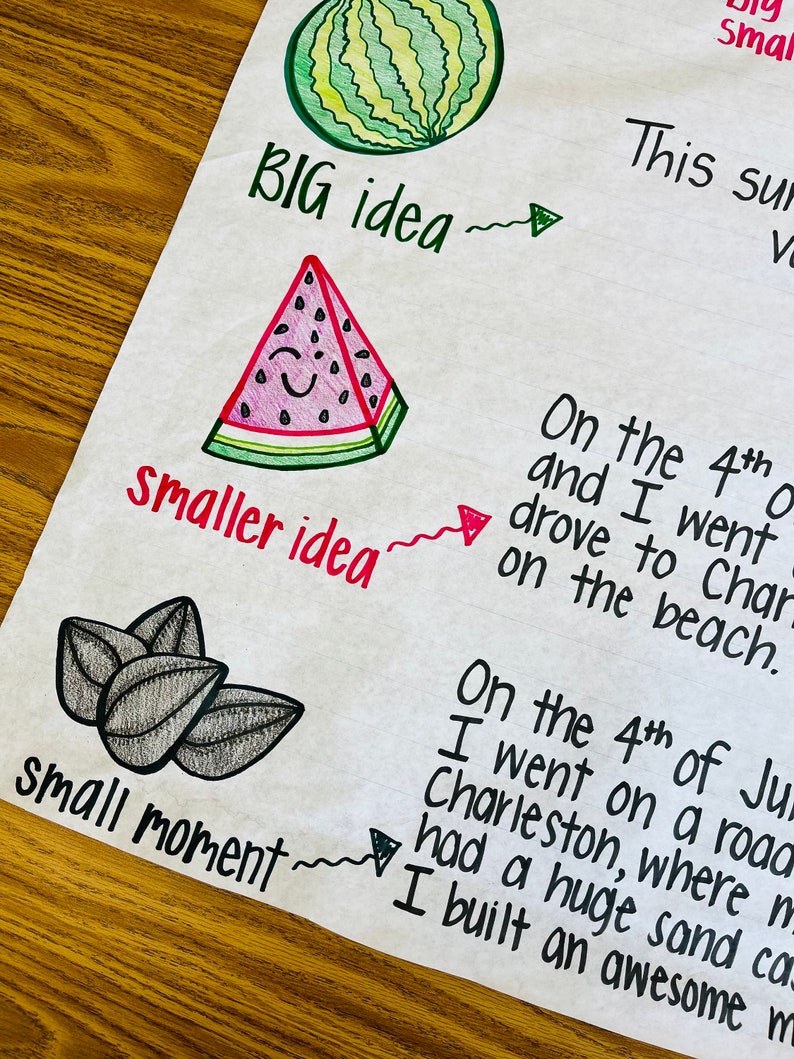 Big
small
This
BIG idea
On the 4th
and I went
smaller idea
drove to
on the beach.
On the 4th of
I went on a road
small moment
Charleston, where
had a huge sand
I built an awesome